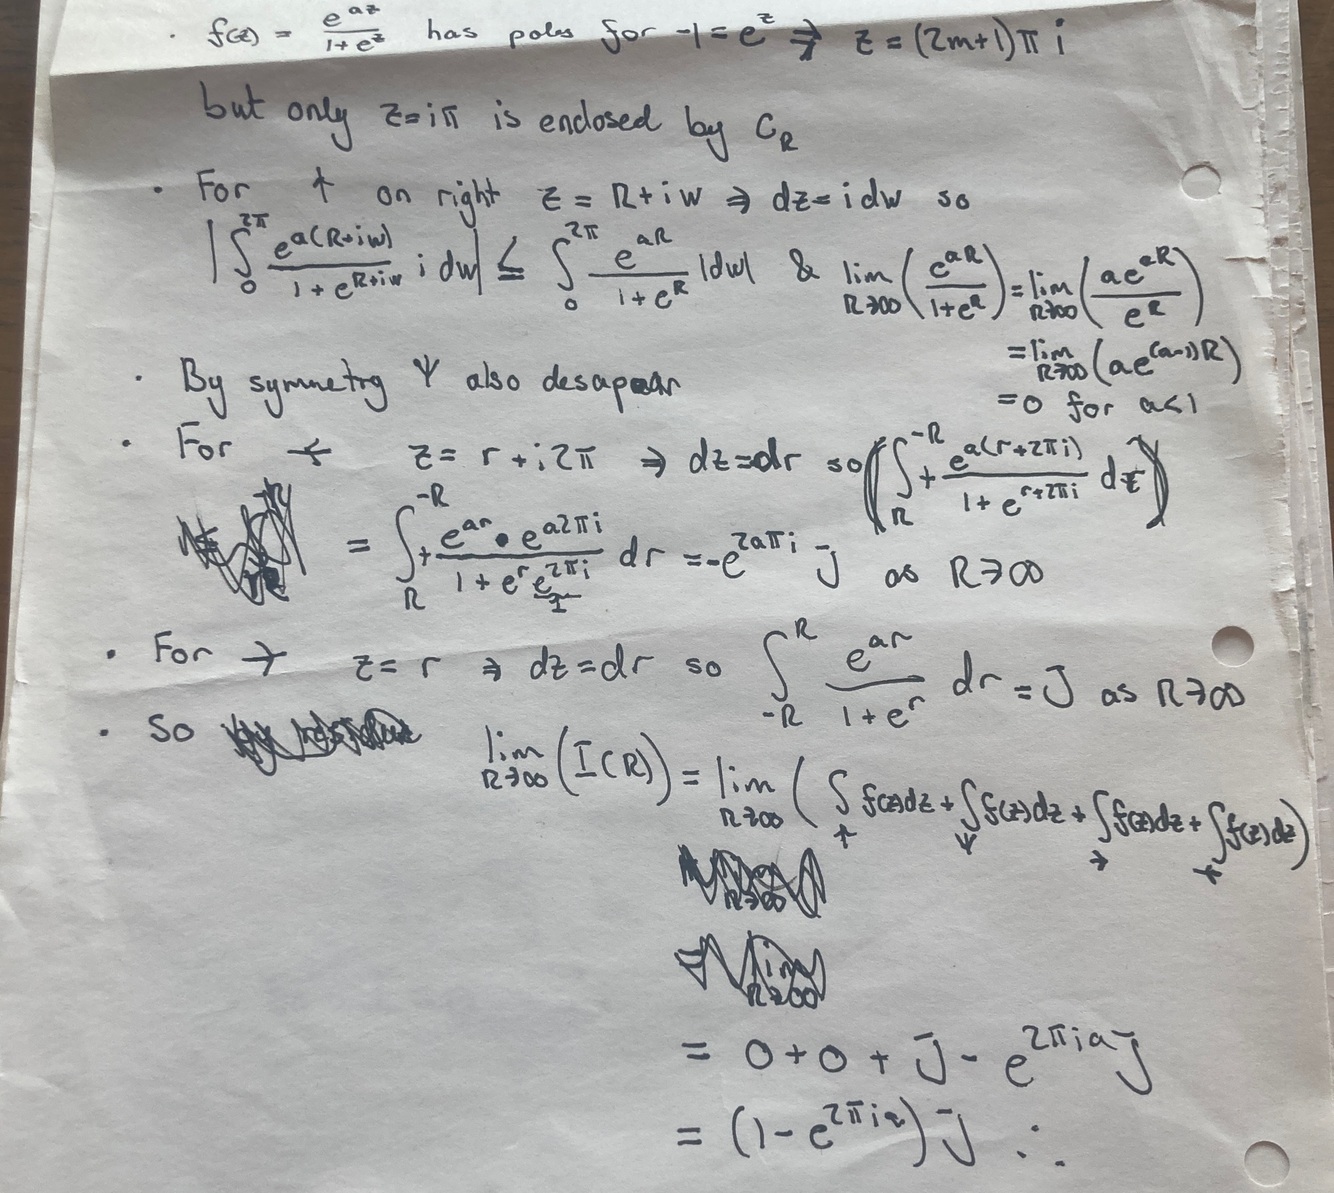 · f(z) = e^{az}/(1+e^z) has poles for -1 = e^z ⇒ z = (2m+1)πi
but only z=iπ is enclosed by C_R
· For ↑ on right z = R+iw ⇒ dz=idw so
|∫_0^{2π} e^{a(R+iw)}/(1+e^{R+iw}) i dw| ≤ ∫_0^{2π} e^{aR}/(1+e^R) |dw| & lim_{R→∞}(e^{aR}/(1+e^R)) = lim_{R→∞}(ae^{aR}/e^R)
= lim_{R→∞}(ae^{(a-1)R})
= 0 for a<1
· By symmetry ↓ also desapear
· For ← z = r+i2π ⇒ dz=dr so (∫_R^{-R} + e^{a(r+2πi)}/(1+e^{r+2πi}) dz)
= ∫_R^{-R} + e^{ar}•e^{a2πi}/(1+e^r e^{2πi}) dr = -e^{2aπi} J as R→∞
1
· For → z = r ⇒ dz=dr so ∫_{-R}^R e^{ar}/(1+e^r) dr = J as R→∞
· So lim_{R→∞}(I(R)) = lim_{R→∞}(∫_↑ f(z)dz + ∫_↓ f(z)dz + ∫_→ f(z)dz + ∫_← f(z)dz)
= 0+0+J - e^{2πia}J
= (1-e^{2πia})J ∴